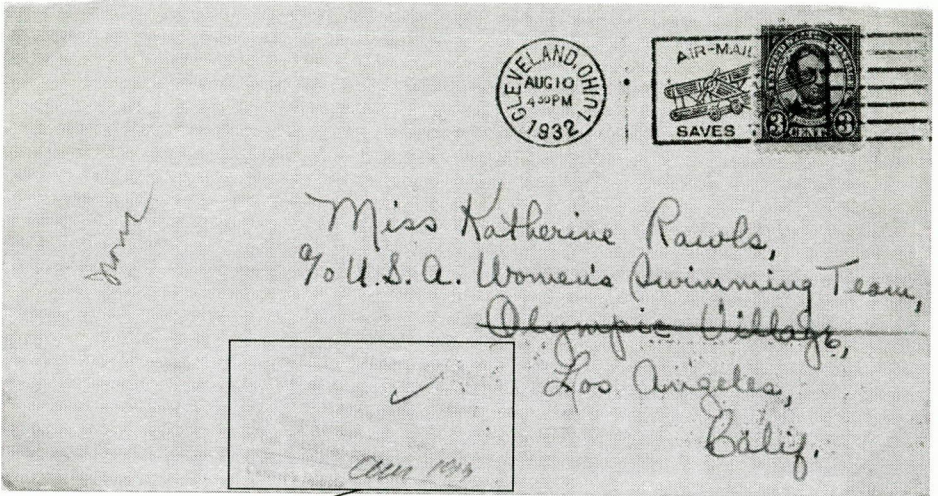 CLEVELAND, OHIO 1
AUG 10
4 30 PM
1932
AIR-MAIL
SAVES
3 3
Miss Katherine Rawls,
c/o U.S.A. Women's Swimming Team,
Olympic Village,
Los Angeles,
Calif.